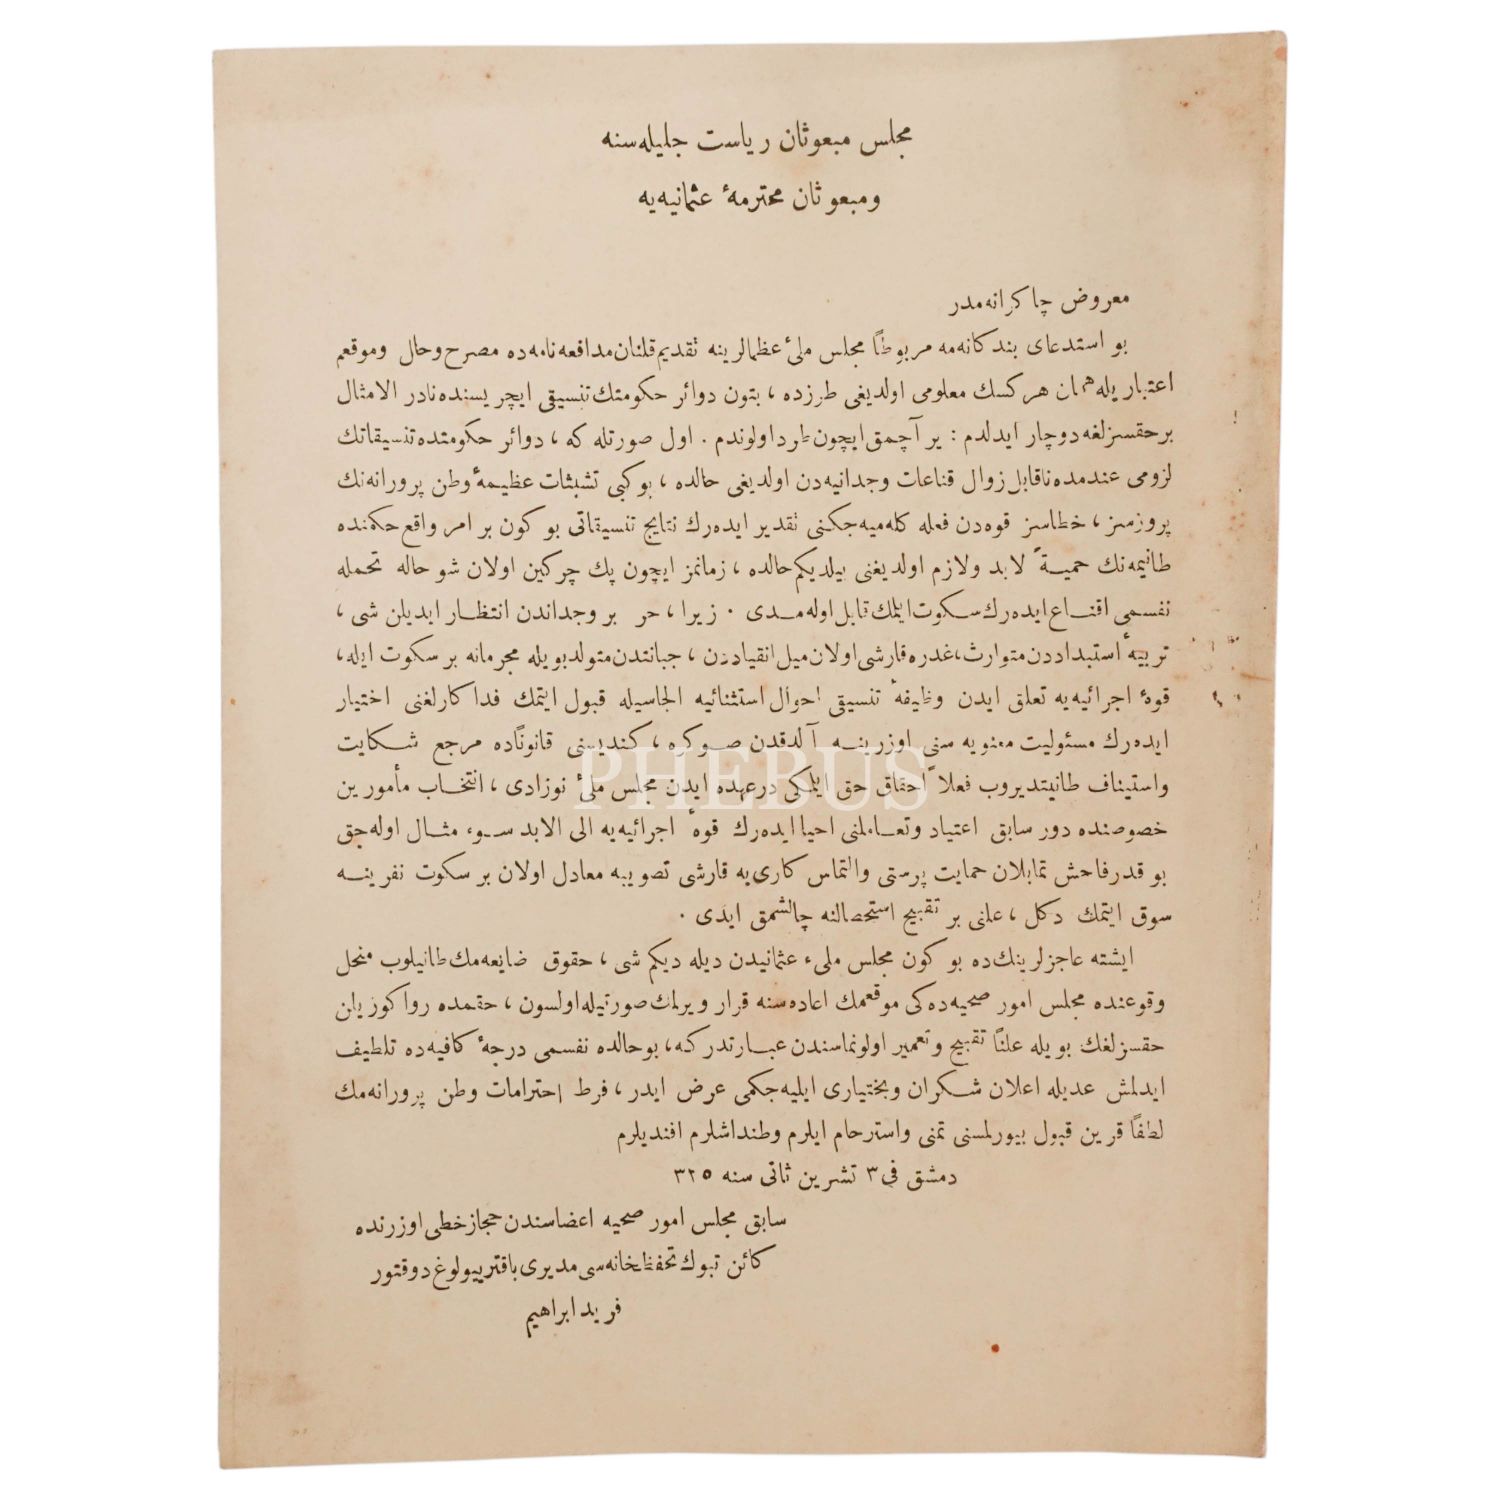 مجلس مبعوثان ریاست جلیله‌سنه
ومبعوثان محترمهٔ عثمانیه‌یه
معروض چاکرانه‌مدر
بو استدعای بندکانه‌مه مربوطاً مجلس ملیٔ عظمالرینه تقدیم قلنان مدافعه‌نامه‌ده مصرح وحال وموقعم
اعتباریله همان هرکسك معلومی اولدیغی طرزده، بتون دوائر حکومتك تنسیقی ایچریسنده نادر الامثال
برحقسزلغه دوچار ایدلدم : یر آچمق ایچون طرد اولوندم . اول صورتله که، دوائر حکومتده تنسیقاتك
لزومی عندمده ناقابل زوال قناعات وجدانیه‌دن اولدیغی حالده، بوکبی تشبثات عظیمهٔ وطن پرورانه‌نك
پروزسز، خطاسز قوه‌دن فعله کله‌میه‌جکنی تقدیر ایده‌رك نتایج تنسیقاتی بو کون بر امر واقع حکمنده
طانیمه‌نك حمیةً لابد ولازم اولدیغنی بیلدیکم حالده، زمانمز ایچون پك چرکین اولان شو حاله تحمله
نفسمی اقنـاع ایده‌رك سکوت ایلمك قابل اوله‌مـدی . زیرا، حر بر وجداندن انتظـار ایدیلن شی،
تربیهٔ استبداددن متوارث، غدره قارشی اولان میل انقیاددن، جبانتدن متولد بویله مجرمانه بر سکوت ایله،
قوهٔ اجرائیه‌یه تعلق ایدن وظیفهٔ تنسیقی احوال استثنائیه الجاسیله قبول ایتمك فداکارلغنی اختیار
ایده‌رك مسئولیت معنویه سنی اوزرینـه آلدقدن صـوکره، کندیسنی قانوناًده مرجع شـکایت
واستیناف طانیتدیروب فعلاً احقاق حق ایلمکی درعهده ایدن مجلس ملیٔ نوزادی، انتخـاب مأمورین
خصوصنده دور سابق اعتیاد وتعـاملنی احیا ایده‌رك قوهٔ اجرائیه‌یه الی الابد سـوء مثـال اوله‌جق
بو قدر فاحش تمایلان حمایت پرستی والتماس کاری‌یه قارشی تصویبه معادل اولان بر سکوت نفرینـه
سوق ایتمك دکل، علنی بر تقبیح استحصالنه چالشمق ایدی .
ایشته عاجزلرینك‌ده بو کون مجلس ملیء عثمانیدن دیله دیکم شی، حقوق ضایعه‌مك طانیلوب منحل
وقوعنده مجلس امور صحیه‌ده‌کی موقعمك اعاده‌سنه قرار ویرلمك صورتیله اولسون، حقمده روا کوریلن
حقسزلغك بویله علناً تقبیح وتعمیر اولونماسندن عبـارتدر که، بوحالده نفسمی درجهٔ کافیه‌ده تلطیف
ایدلمش عدیله اعلان شـکران وبختیاری ایلیه‌جکمی عرض ایدر، فرط احترامات وطن پرورانه‌مك
لطفاً قرین قبول بیورلمسنی تمنی واسترحام ایلرم وطنداشلرم افندیلرم
دمشق فی ۳ تشرین ثانی سنه ۳۲۵
سابق مجلس امور صحیه اعضاسندن حجاز خطی اوزرنده
کائن تبوك تحفظخانه‌سی مدیری باقترییولوغ دوقتور
فرید ابراهیم
PHEBUS